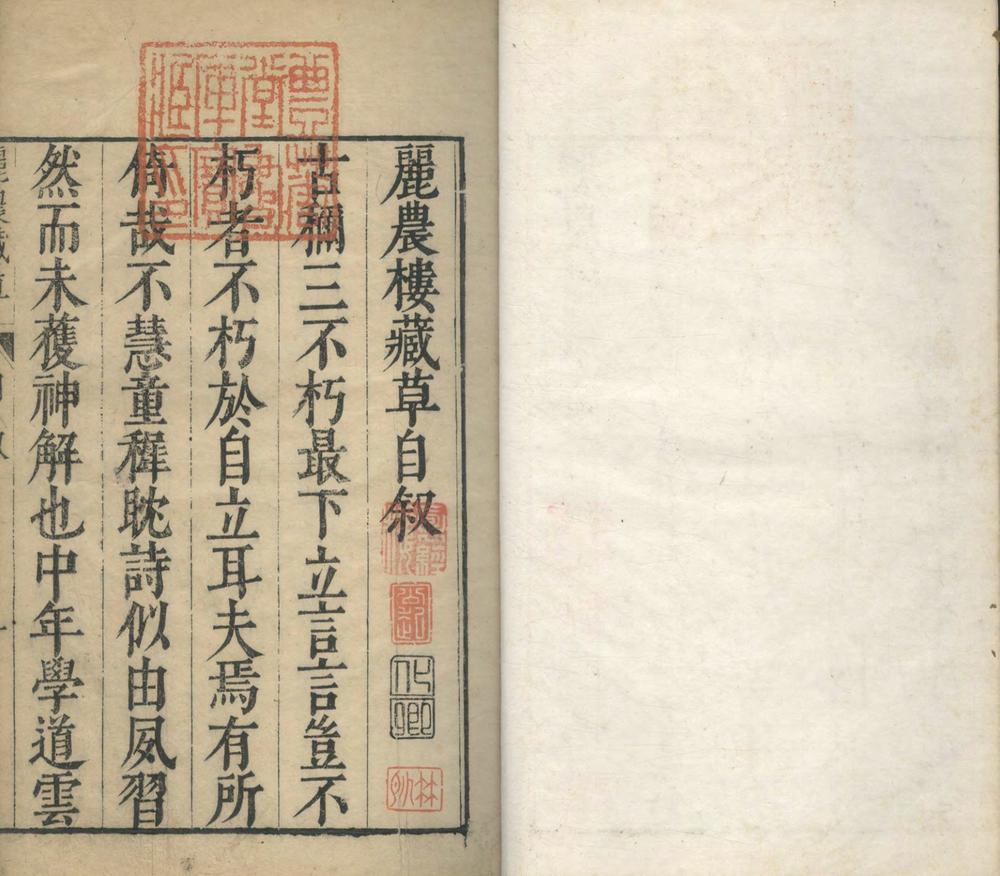 麗農樓藏草自叙
古穪三不朽最下立言言豈不
朽者不朽於自立耳夫焉有所
倚哉不慧童穉耽詩似由夙習
然而未獲神解也中年學道雲
豐華堂書庫寶藏印
化卿